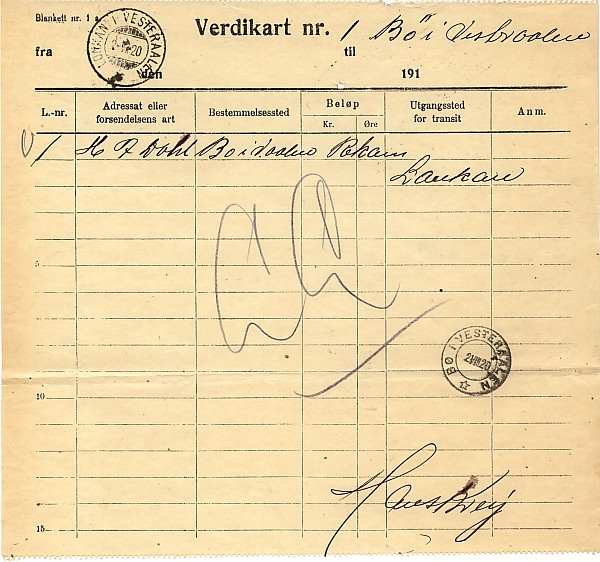 Blankett nr. 1 a
Verdikart nr. 1 Bö i Vesteraalen
fra til
den 191
LONKAN I VESTERAALEN
20
L.-nr. Adressat eller forsendelsens art Bestemmelsessted Beløp Utgangssted for transit Anm.
Kr. Øre
1 H F Dahl Bö i Vaalen Rekom
Lankan
5
10
15
BØ I VESTERAALEN
2 VIII 20
Hans